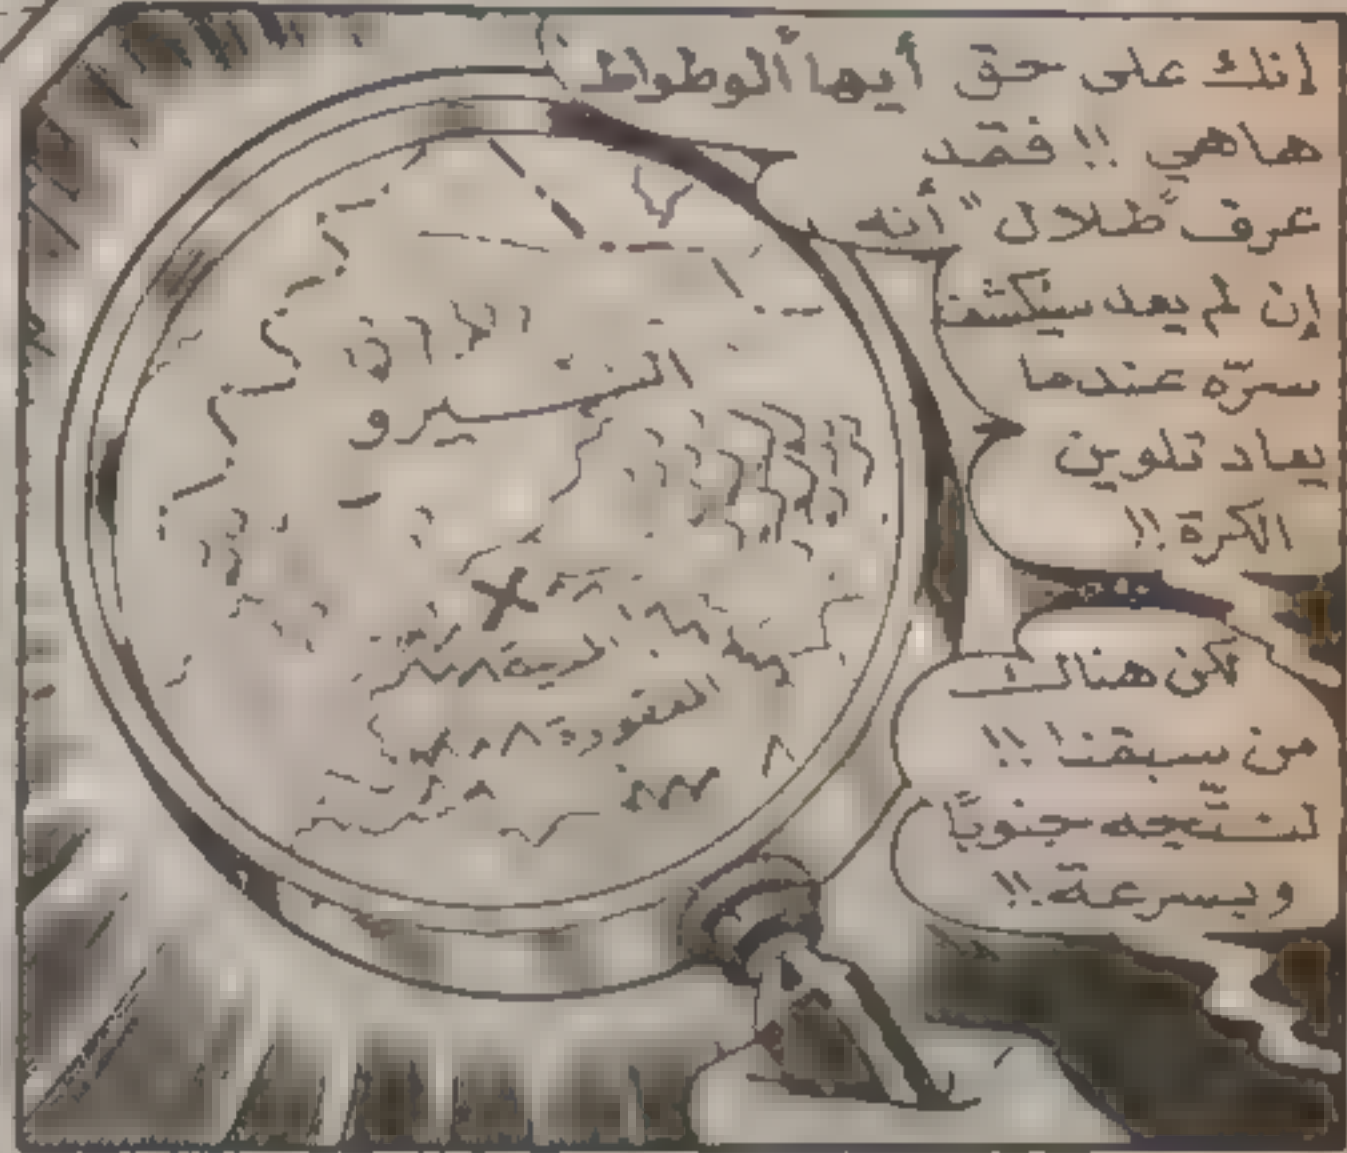 إنك على حق أيها الوطواط
هاهي !! فقد
عرف "طلال" أنه
إن لم يعد سنكشف
سرّه عندما
يعاد تلوين
الكرة !!
لكن هناك
من سبقنا !!
لنتّجه جنوبًا
وبسرعة !!